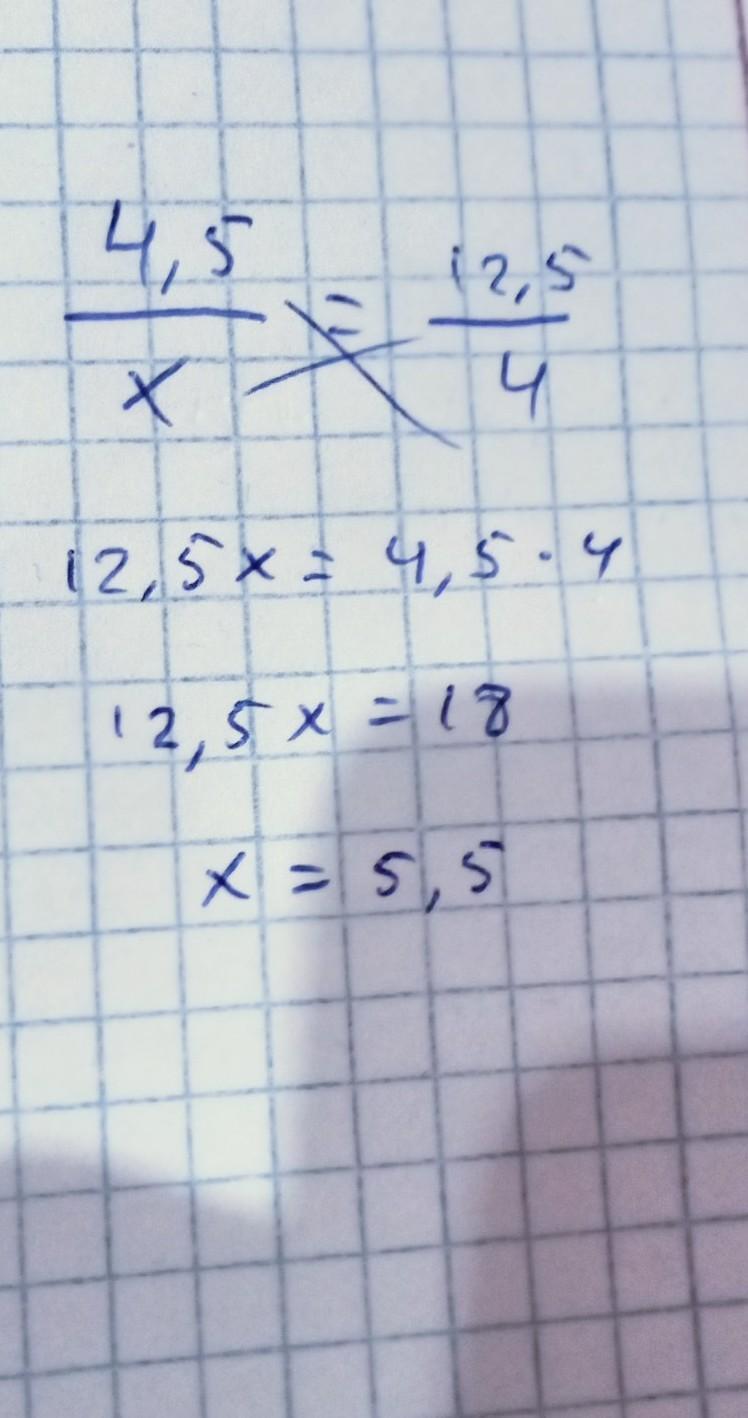 4,5 / x = 12,5 / 4
12,5x = 4,5 · 4
12,5x = 18
x = 5,5